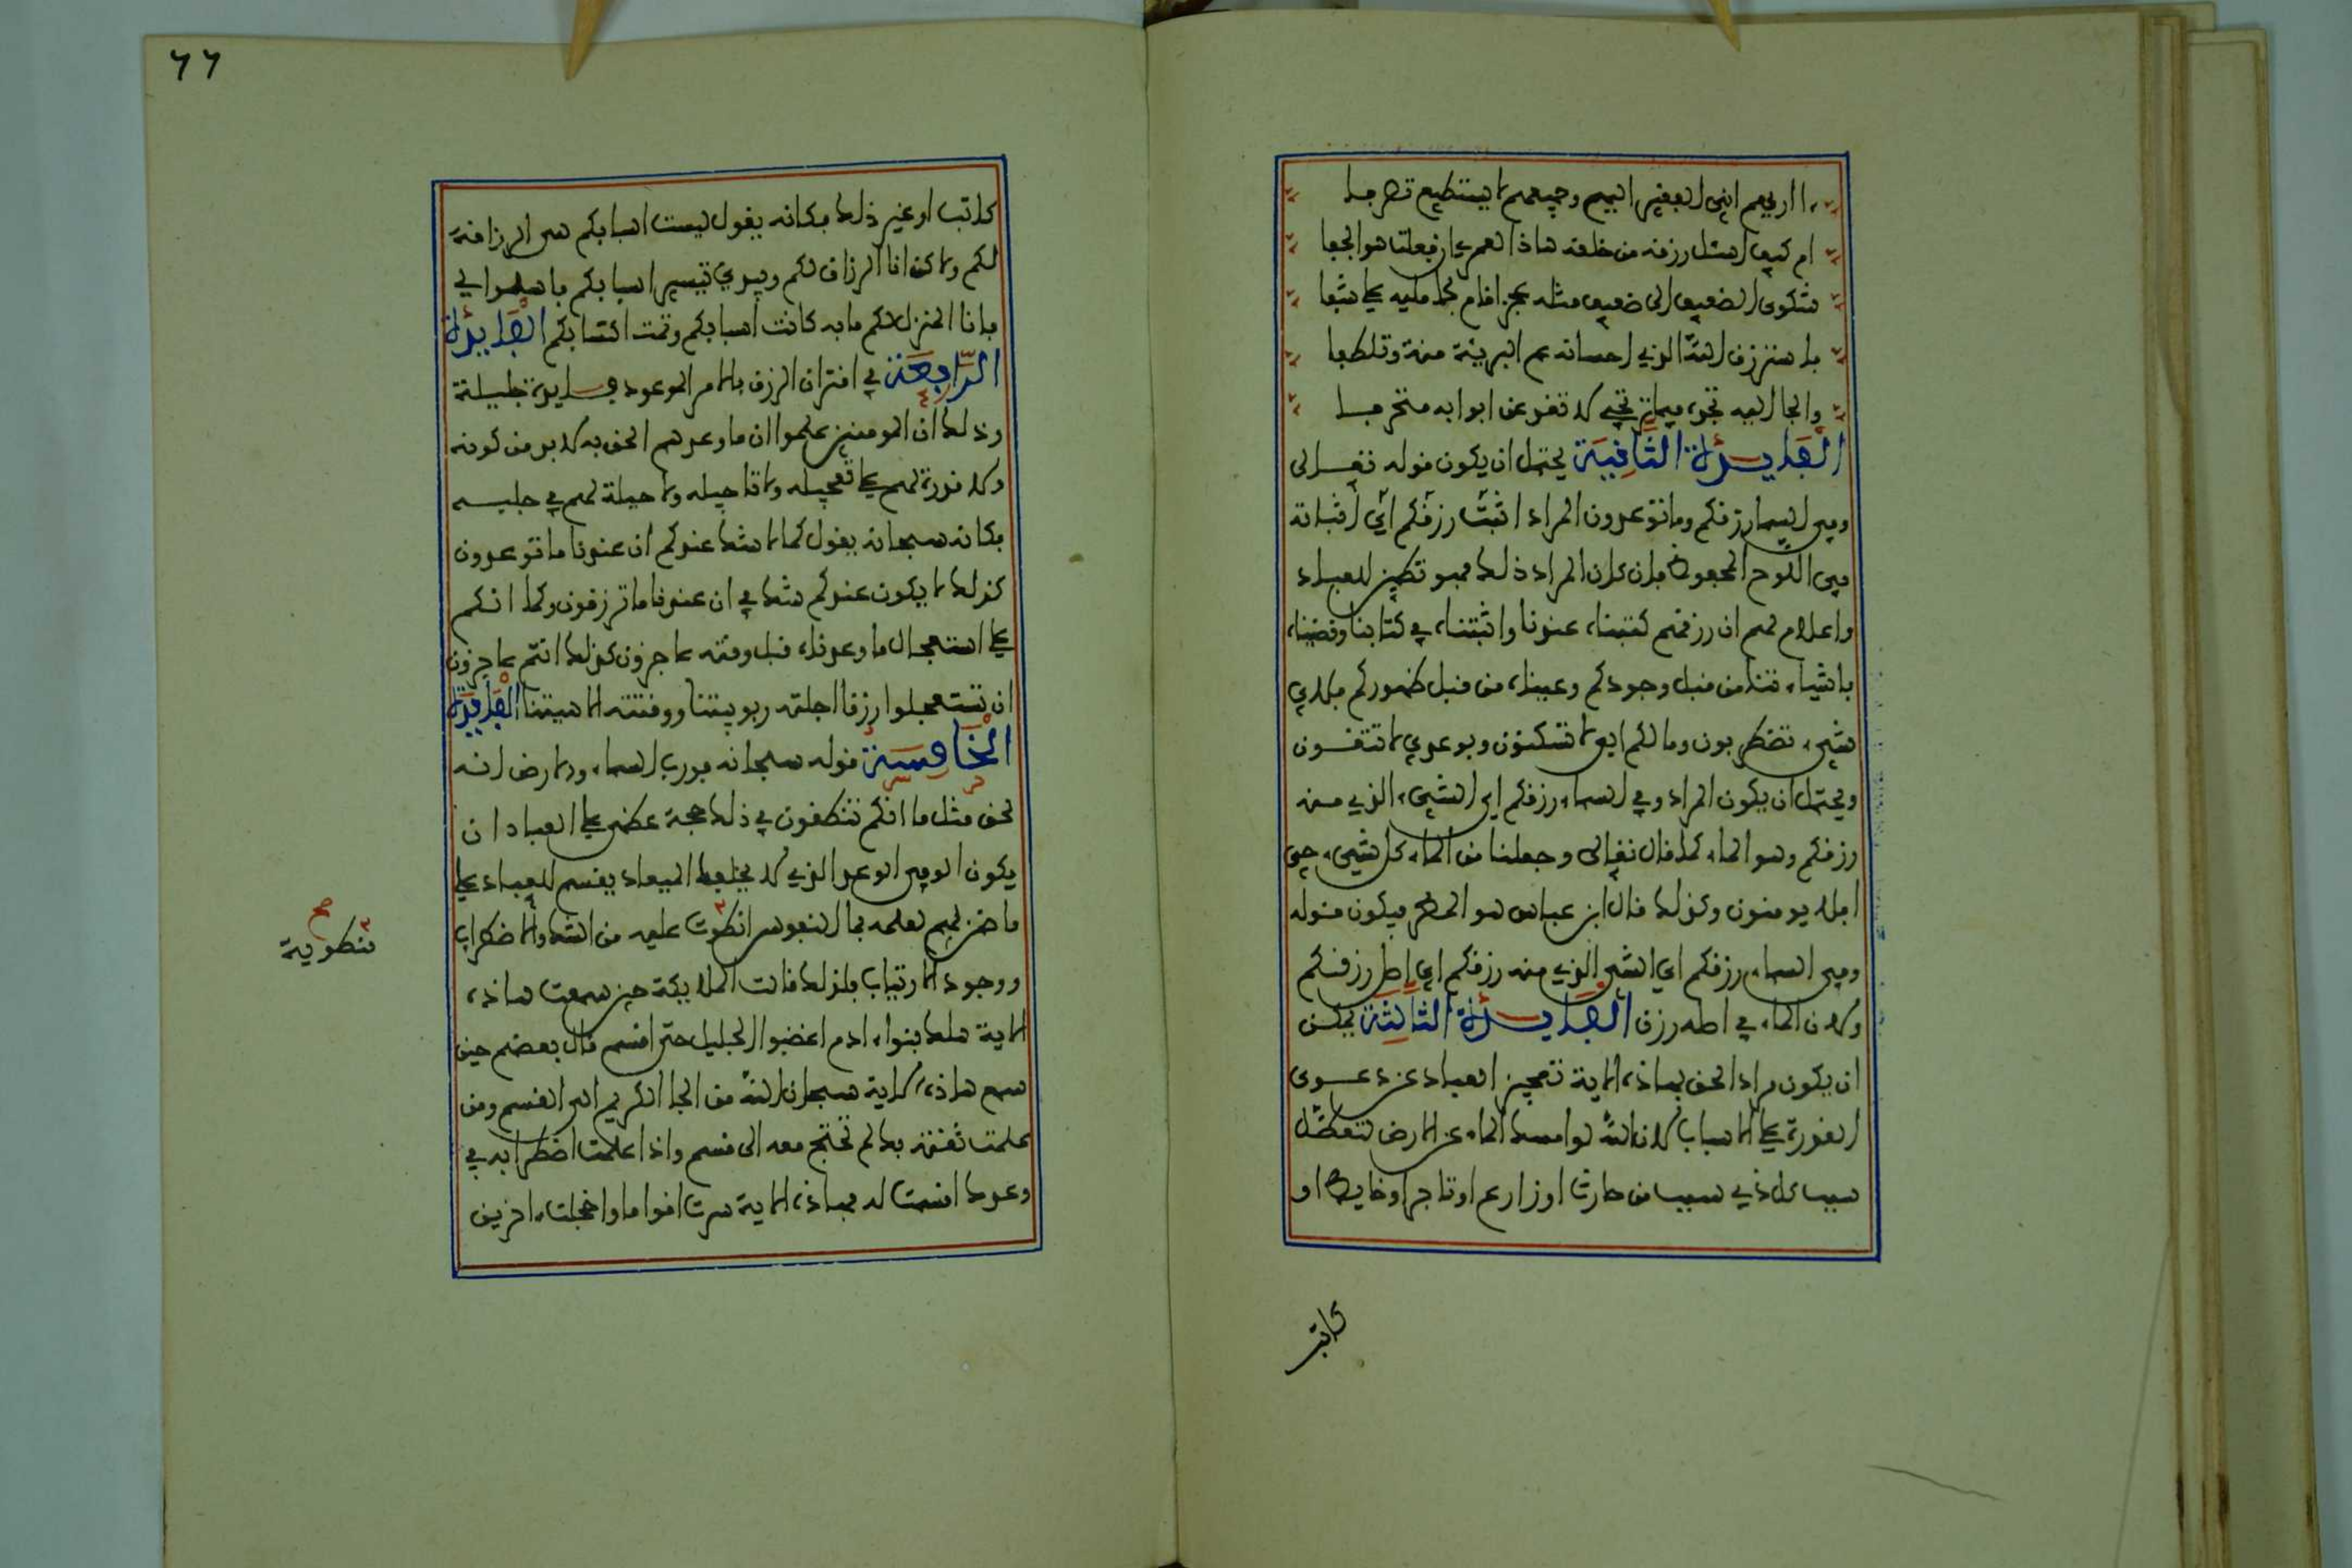 أأريهم أني الفقير إليهم وجميعهم لا يستطيع تصرفا
أم كيف أسئل رزقه من خلقه هاذا لعمري إن فعلت هو الجفا
شكوى الضعيف إلى ضعيف مثله عجز أقام بحامليه على شفا
فاسترزق الله الذي إحسانه عم البرية منة وتلطفا
والجأ إليه تجده فيما ترتجي لا تعد عن أبوابه متحرفا
الفايدة الثانية يحتمل أن يكون قوله تعالى
وفي السما رزقكم وما توعدون المراد اثبت رزقكم أي أثباته
في اللوح المحفوظ فإن كان المراد ذلك فهو تطمين للعباد
وإعلام لهم أن رزقهم كتبناه عندنا وأثبتناه في كتابنا وقضيناه
بأشياءنا من قبل وجودكم وعيناه من قبل ظهوركم فلأي
شيء تضطربون وما لكم إلي لا تسكنون وبوعدي لا تثقون
ويحتمل أن يكون المراد وفي السماء رزقكم أي الشيء الذي منه
رزقكم وهو الماء كما قال تعالى وجعلنا من الماء كل شيء حي
أفلا يومنون وكذلك قال ابن عباس هو المطر فيكون قوله
وفي السماء رزقكم أي الشيء الذي منه رزقكم أي أصل رزقكم
ولأن الماء في أصله رزق الفايدة الثالثة يمكن
أن يكون مراد الحق بهاذه الآية تعجيز العباد عن دعوى
القدرة على الأسباب لأن الله لو أمسك الماء عن الأرض لتعطل
سبب كل ذي سبب من حارث أو زارع أو تاجر أو خايط أو
كاتب
٦٦
كاتب أو غير ذلك فكأنه يقول ليست أسبابكم هي الرازقة
لكم ولاكن أنا الرزاق لكم وبيدي تيسير أسبابكم
فأنا المنزل لكم ما به كانت أسبابكم وتمت اكتسابكم الفايدة
الرابعة في اقتران الرزق بالأمر الموعود فايدة جليلة
وذلك أن المومنين علموا أن ما وعدهم الحق به لا بد من كونه
ولا قدرة لهم على تعجيله ولا تاجيله ولا حيلة لهم في جلبه
فكأنه سبحانه يقول كما لا شك عندكم أن عندنا ما توعدون
كذلك لا يكون عندكم شك في أن عندنا ما ترزقون وكما أنكم
على استعجال ما وعدناه قبل وقته عاجزون كذلك أنتم عاجزون
أن تستعجلوا رزقا أجلته ربوبيتنا ووقتته إلاهيتنا الفايدة
الخامسة قوله سبحانه فورب السماء والأرض إنه
لحق مثل ما أنكم تنطقون في ذلك حجة عظمى على العباد أن
يكون الوفي الوعد الذي لا يخلف الميعاد يقسم للعباد على
ما ضمن لهم لعلمه بما النفوس انطوت عليه من الشك والاضطراب
منطوية
صح
ووجود الارتياب فلذلك قالت الملايكة حين سمعت هاذه
الآية هلك بنوا ادم أغضبوا الجليل حتى أقسم قال بعضهم حين
سمع هاذه الآية سبحان الله من الجأ الكريم إلى القسم ومن
علمت ثقته بك لم تحتج معه إلى قسم وإذا علمت اضطرابه في
وعدك أقسمت له فهاذه الآية سرت أقواما وأخجلت آخرين